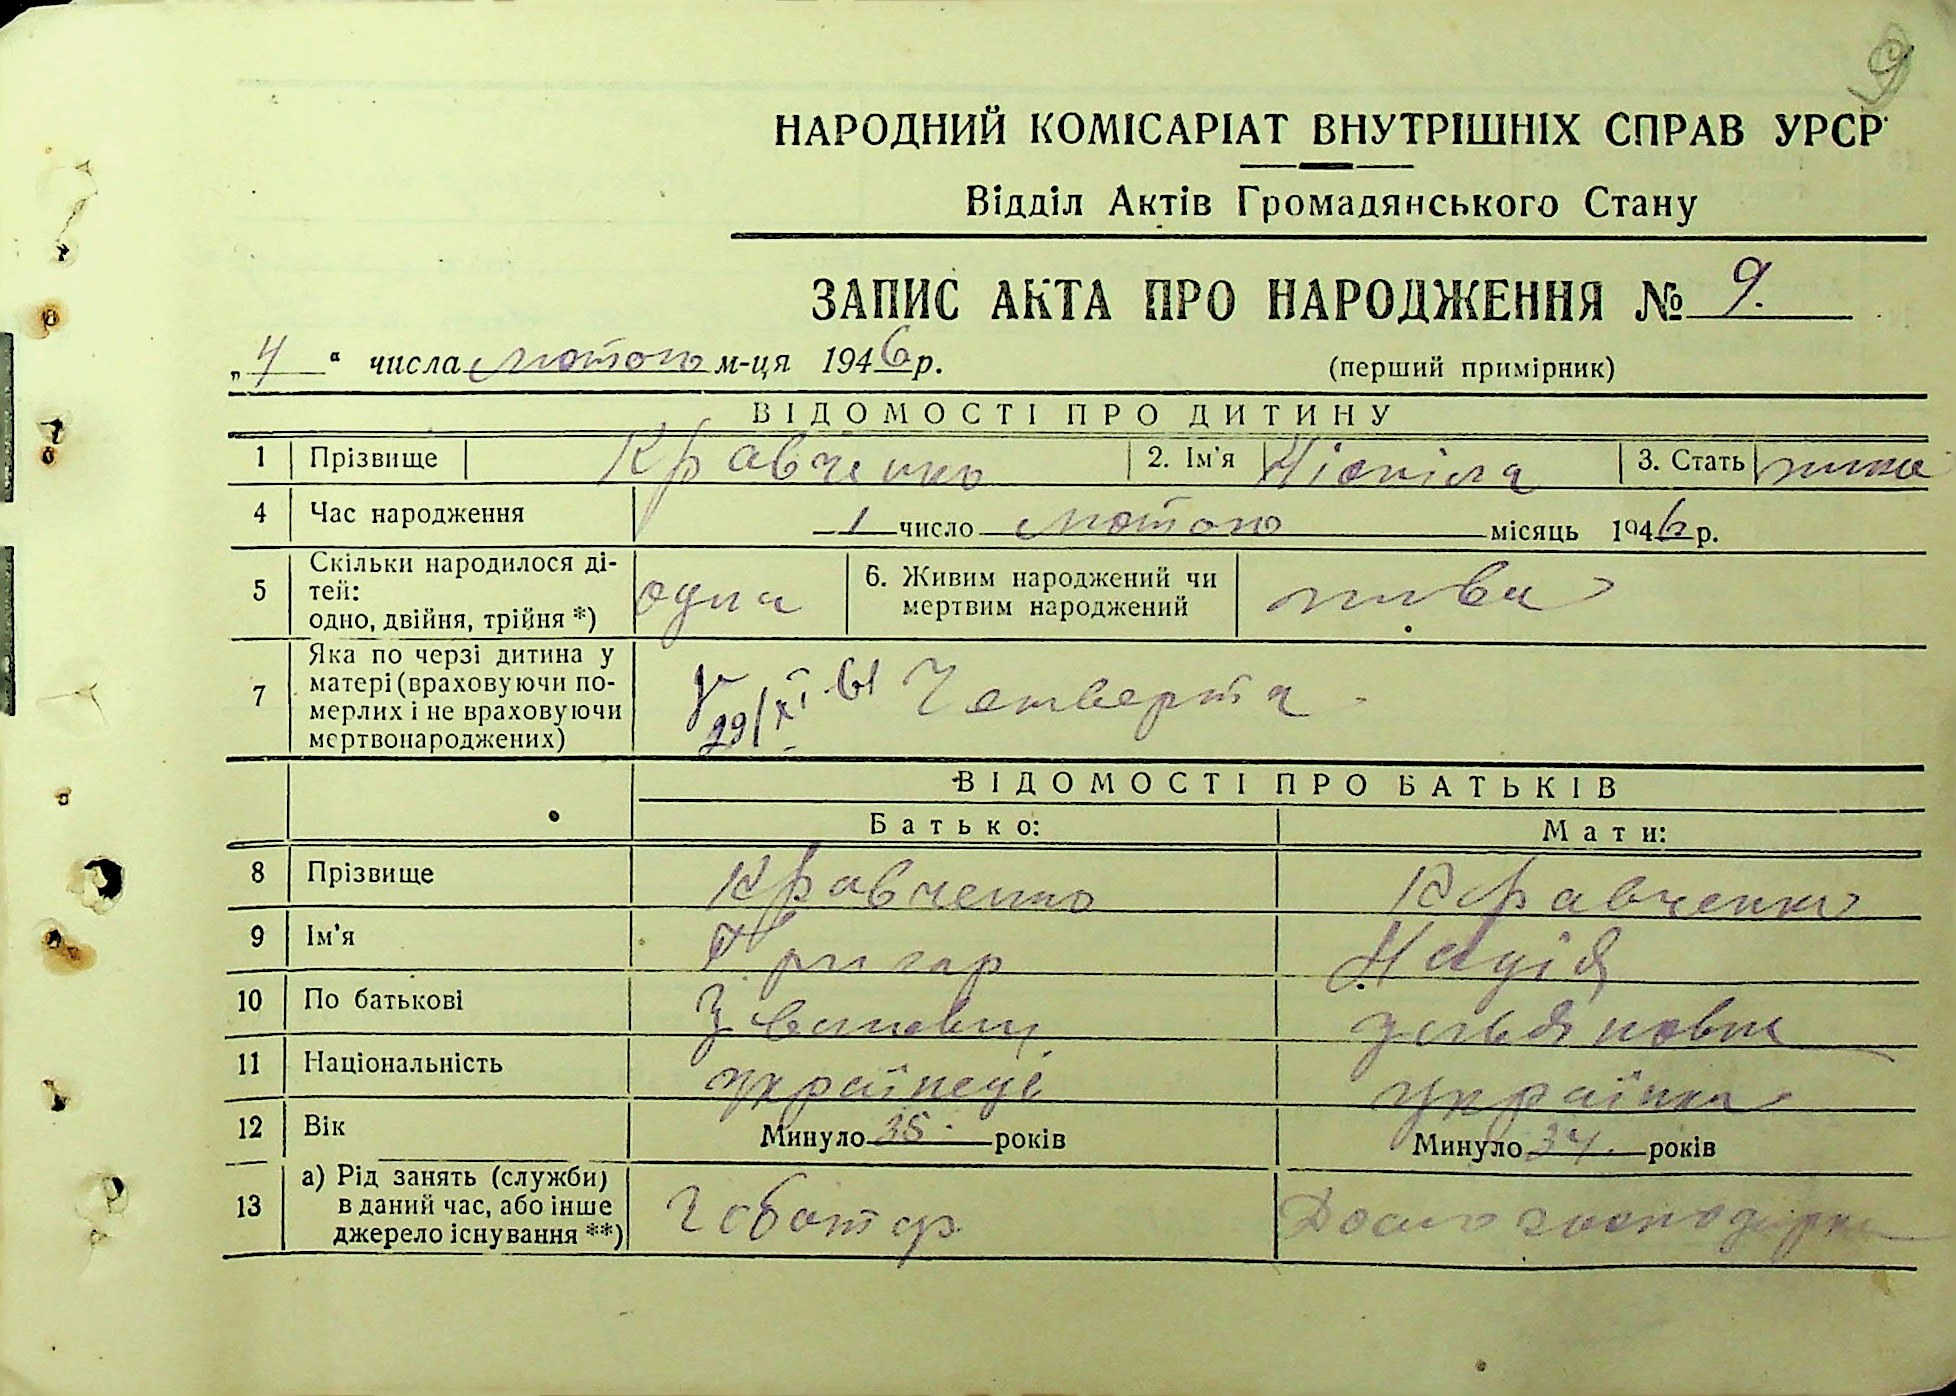 9
НАРОДНИЙ КОМІСАРІАТ ВНУТРІШНІХ СПРАВ УРСР
Відділ Актів Громадянського Стану
ЗАПИС АКТА ПРО НАРОДЖЕННЯ № 9.
„ 4 “ числа лютого м-ця 1946 р. (перший примірник)
ВІДОМОСТІ ПРО ДИТИНУ
1 Прізвище Кравченко 2. Ім'я 3. Стать жіноча
4 Час народження 1 число лютого місяць 1946 р.
5 Скільки народилося ді-
тей:
одно, двійня, трійня *) одна 6. Живим народжений чи
мертвим народжений жива
7 Яка по черзі дитина у
матері (враховуючи по-
мерлих і не враховуючи
мертвонароджених) 29/XI 61 Четверта
ВІДОМОСТІ ПРО БАТЬКІВ
Батько: Мати:
8 Прізвище Кравченко Кравченко
9 Ім'я Григор Надія
10 По батькові Іванович Ульяновна
11 Національність українець українка
12 Вік Минуло 35. років Минуло 34. років
13 а) Рід занять (служби)
в даний час, або інше
джерело існування **) Домогосподарка